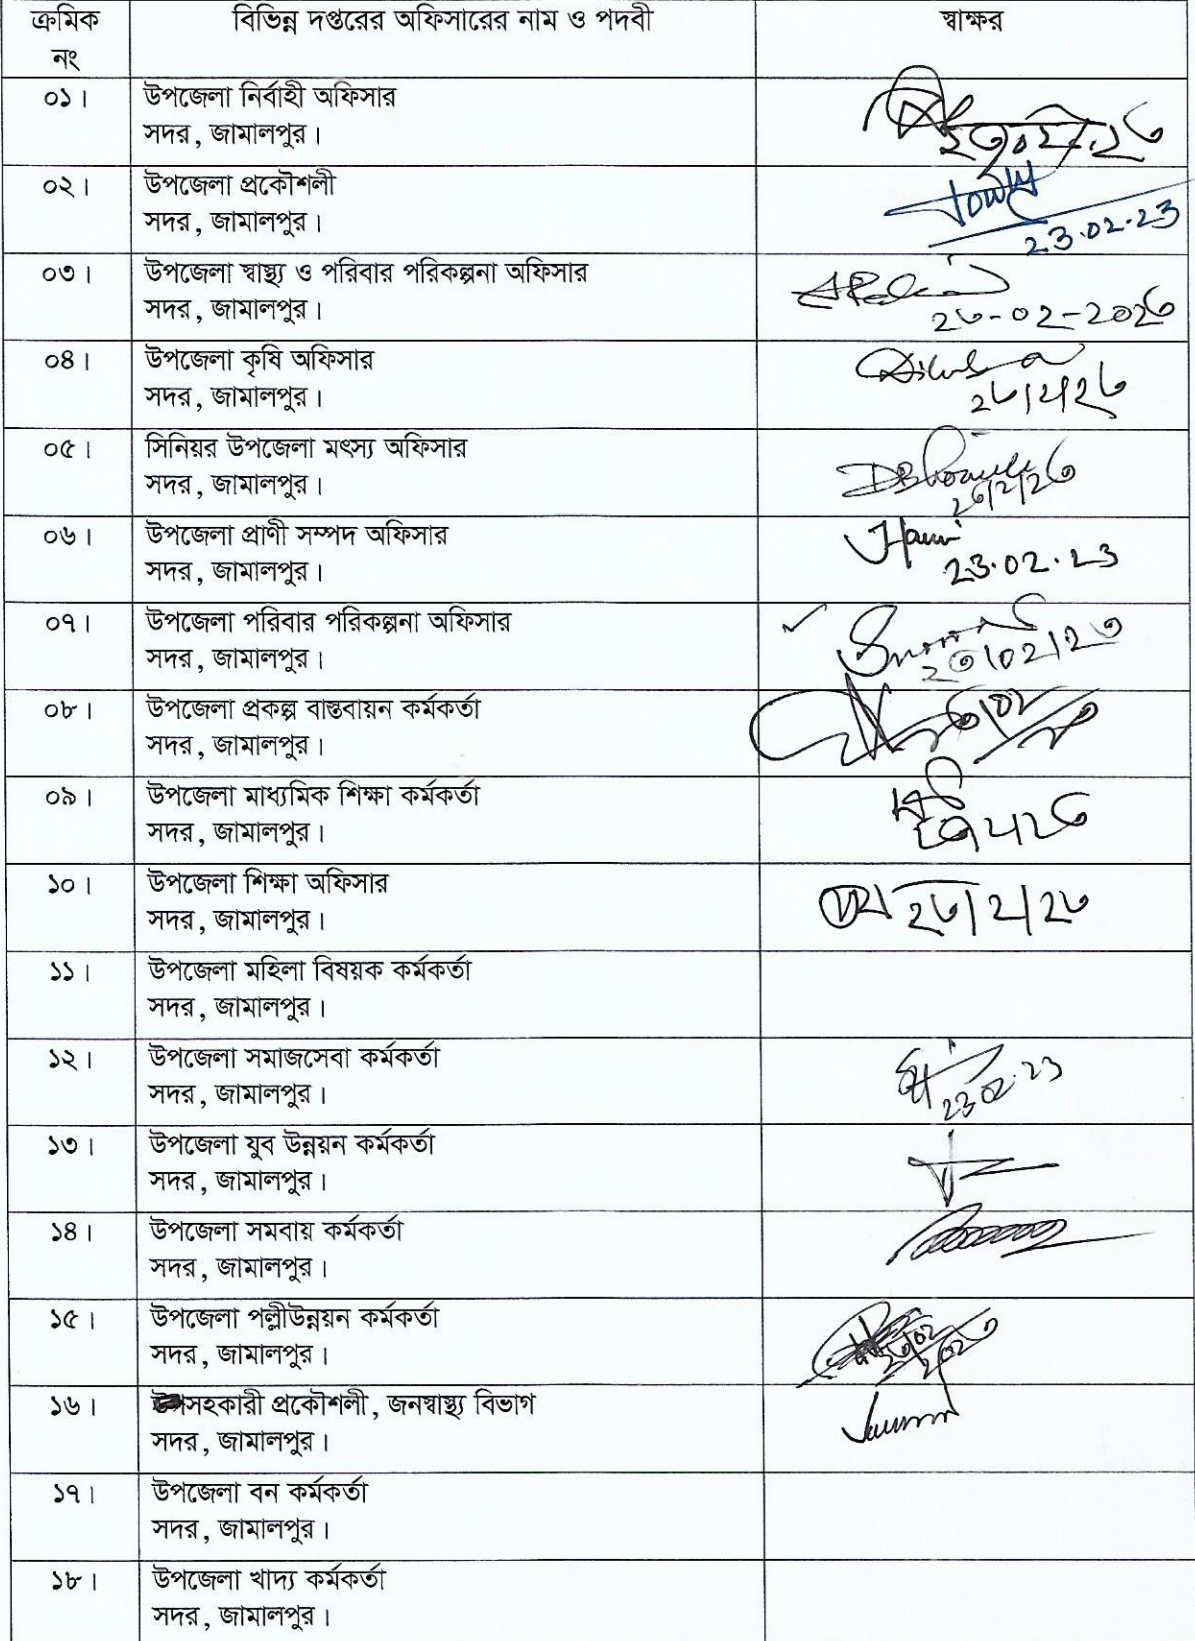 ক্রমিক নং বিভিন্ন দপ্তরের অফিসারের নাম ও পদবী স্বাক্ষর
০১। উপজেলা নির্বাহী অফিসার
সদর, জামালপুর।
২৩.০২.২৩
০২। উপজেলা প্রকৌশলী
সদর, জামালপুর।
23.02.23
০৩। উপজেলা স্বাস্থ্য ও পরিবার পরিকল্পনা অফিসার
সদর, জামালপুর।
২৩-০২-২০২৩
০৪। উপজেলা কৃষি অফিসার
সদর, জামালপুর।
২৩/২/২৩
০৫। সিনিয়র উপজেলা মৎস্য অফিসার
সদর, জামালপুর।
২৩/২/২৩
০৬। উপজেলা প্রাণী সম্পদ অফিসার
সদর, জামালপুর।
23.02.23
০৭। উপজেলা পরিবার পরিকল্পনা অফিসার
সদর, জামালপুর।
২৩/০২/২৩
০৮। উপজেলা প্রকল্প বাস্তবায়ন কর্মকর্তা
সদর, জামালপুর।
০৯। উপজেলা মাধ্যমিক শিক্ষা কর্মকর্তা
সদর, জামালপুর।
১০। উপজেলা শিক্ষা অফিসার
সদর, জামালপুর।
২৩/২/২৩
১১। উপজেলা মহিলা বিষয়ক কর্মকর্তা
সদর, জামালপুর।
১২। উপজেলা সমাজসেবা কর্মকর্তা
সদর, জামালপুর।
23.02.23
১৩। উপজেলা যুব উন্নয়ন কর্মকর্তা
সদর, জামালপুর।
১৪। উপজেলা সমবায় কর্মকর্তা
সদর, জামালপুর।
১৫। উপজেলা পল্লীউন্নয়ন কর্মকর্তা
সদর, জামালপুর।
১৬। সহকারী প্রকৌশলী, জনস্বাস্থ্য বিভাগ
সদর, জামালপুর।
১৭। উপজেলা বন কর্মকর্তা
সদর, জামালপুর।
১৮। উপজেলা খাদ্য কর্মকর্তা
সদর, জামালপুর।